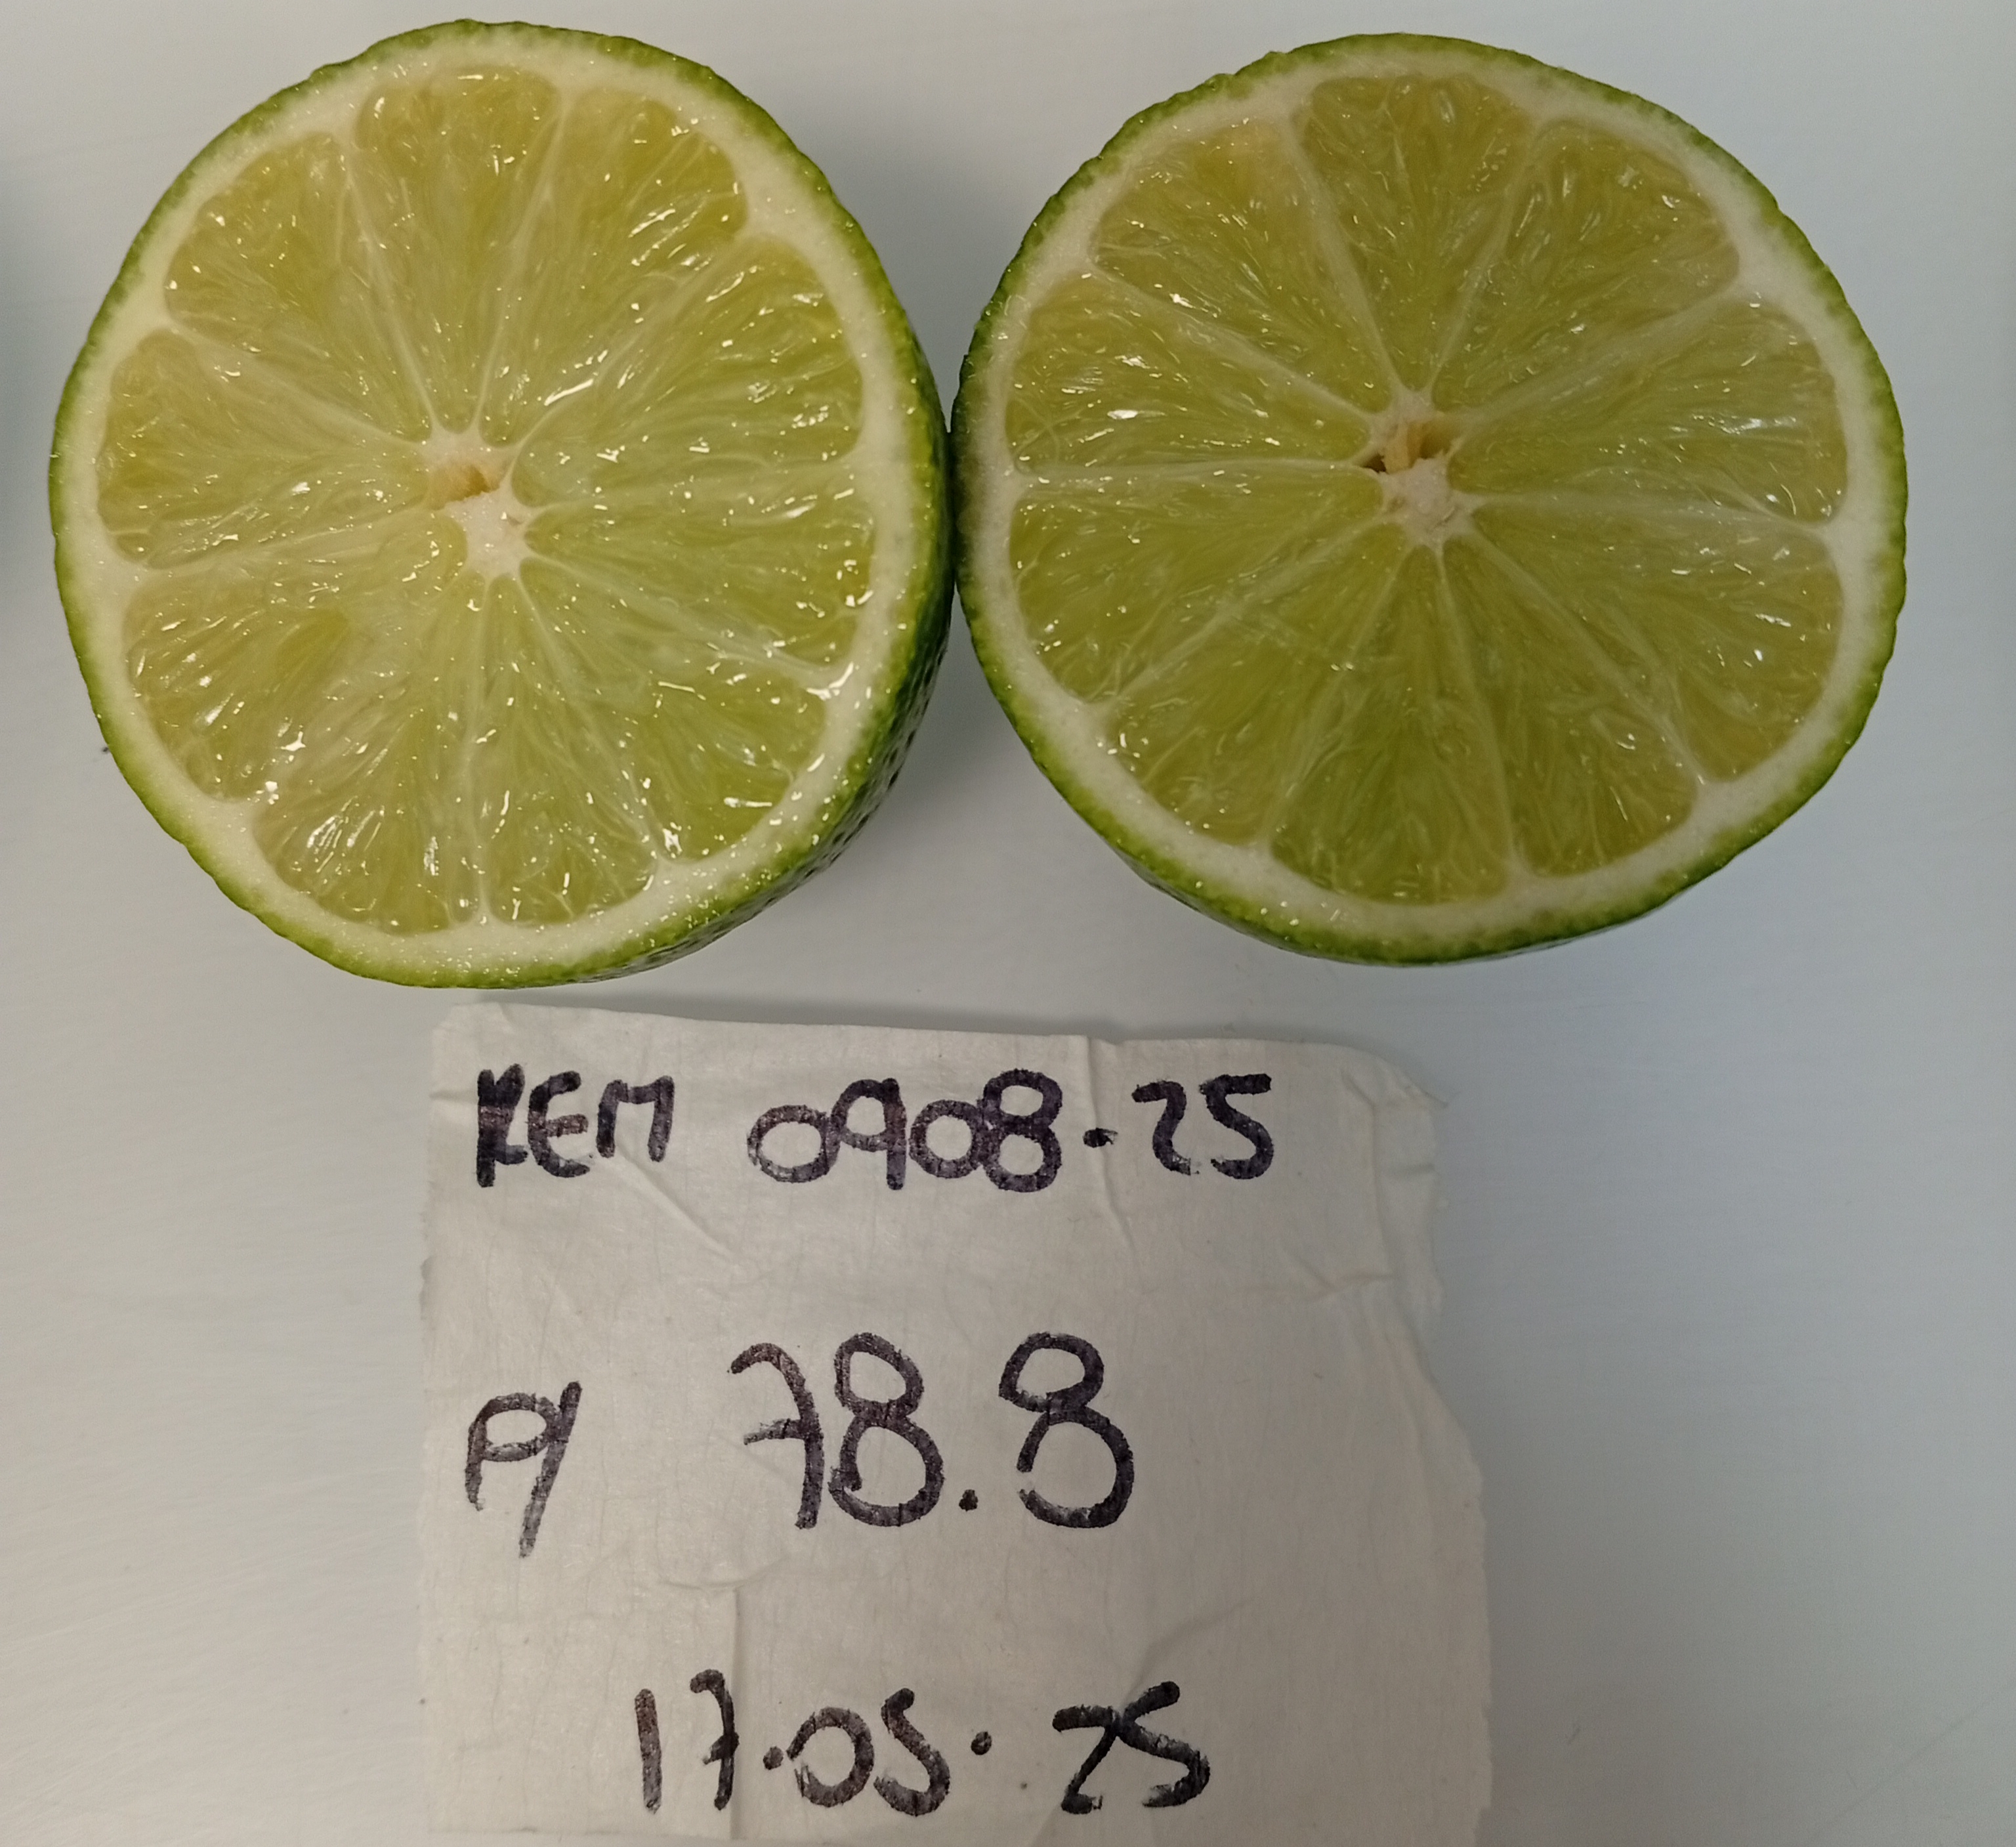 REM 0908-25
P/ 78.8
17.05.25